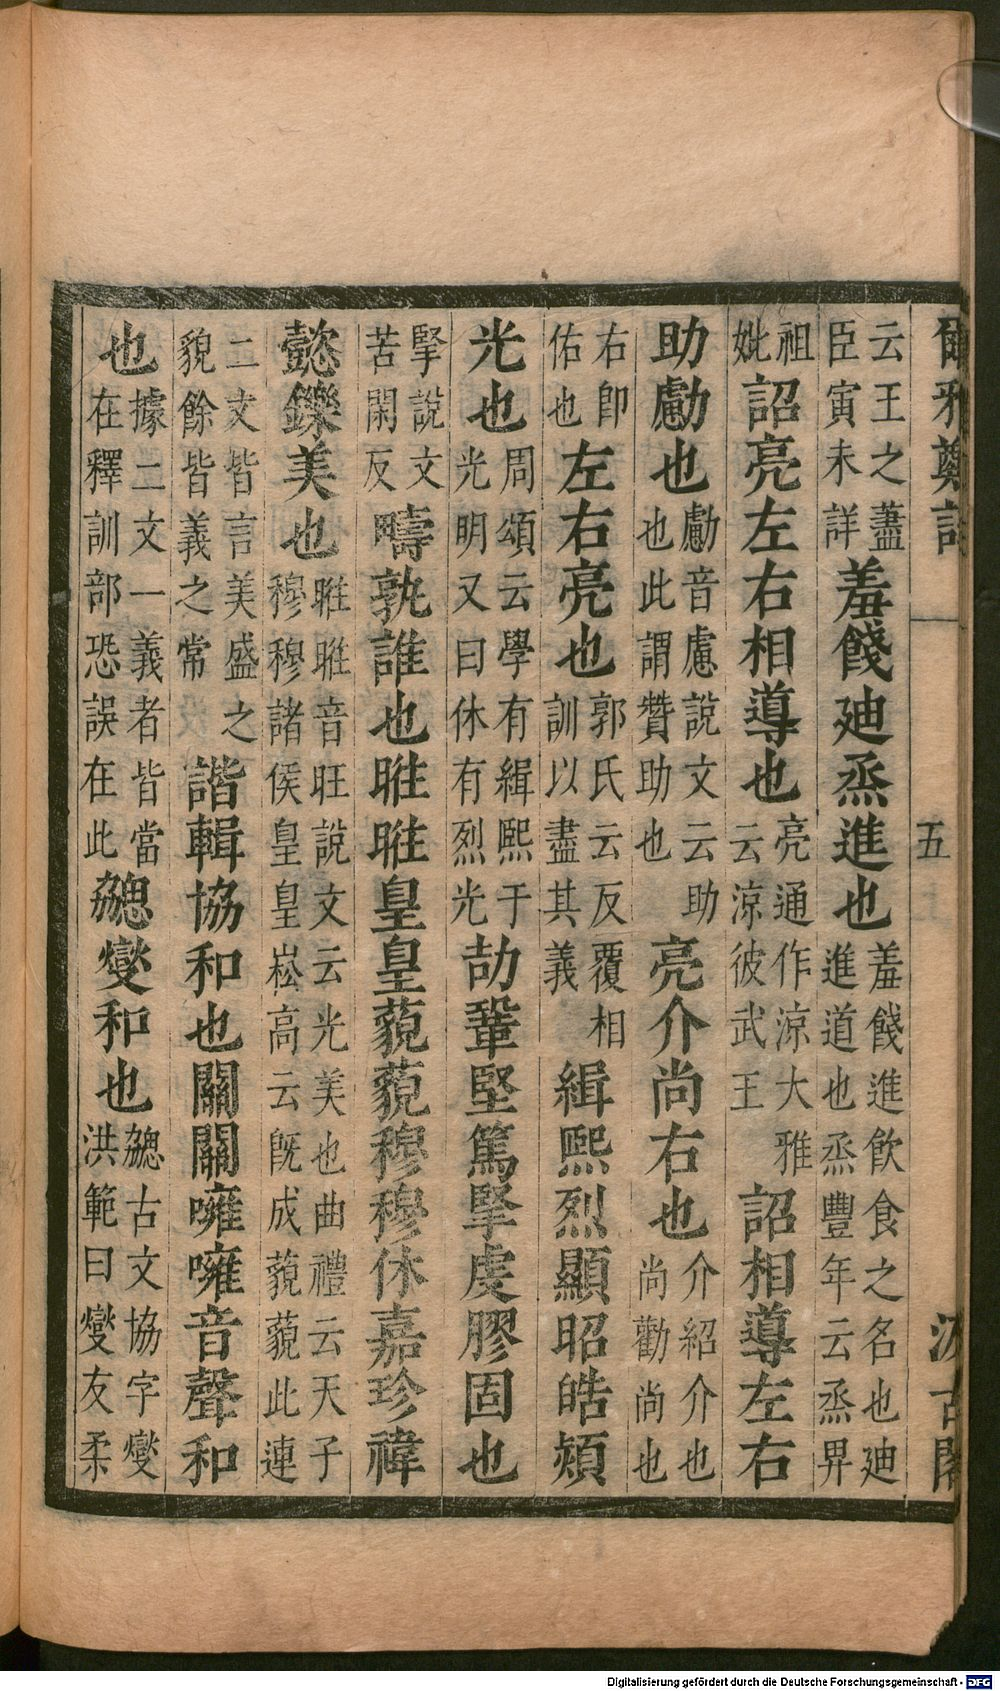 爾雅鄭註　五　汲古閣
云王之藎臣寅未詳羞餞廸烝進也羞餞進飲食之名也廸進道也烝豐年云烝畀
祖妣詔亮左右相導也亮通作涼大雅云涼彼武王詔相導左右
助勴也勴音慮說文云助也此謂贊助也亮介尚右也介紹介也尚勸尚也
右卽佑也左右亮也郭氏云反覆相訓以盡其義緝熙烈顯昭皓熲
光也周頌云學有緝熙于光明又曰休有烈光劼鞏堅篤掔虔膠固也
掔說文苦閑反疇孰誰也暀暀皇皇藐藐穆穆休嘉珍禕
懿鑠美也暀暀音旺說文云光美也曲禮云天子穆穆諸侯皇皇崧高云旣成藐藐此連
二文皆言美盛之貌餘皆義之常諧輯協和也關關噰噰音聲和
也據二文一義者皆當在釋訓部恐誤在此勰燮和也勰古文協字燮洪範曰燮友柔
Digitalisierung gefördert durch die Deutsche Forschungsgemeinschaft - DFG